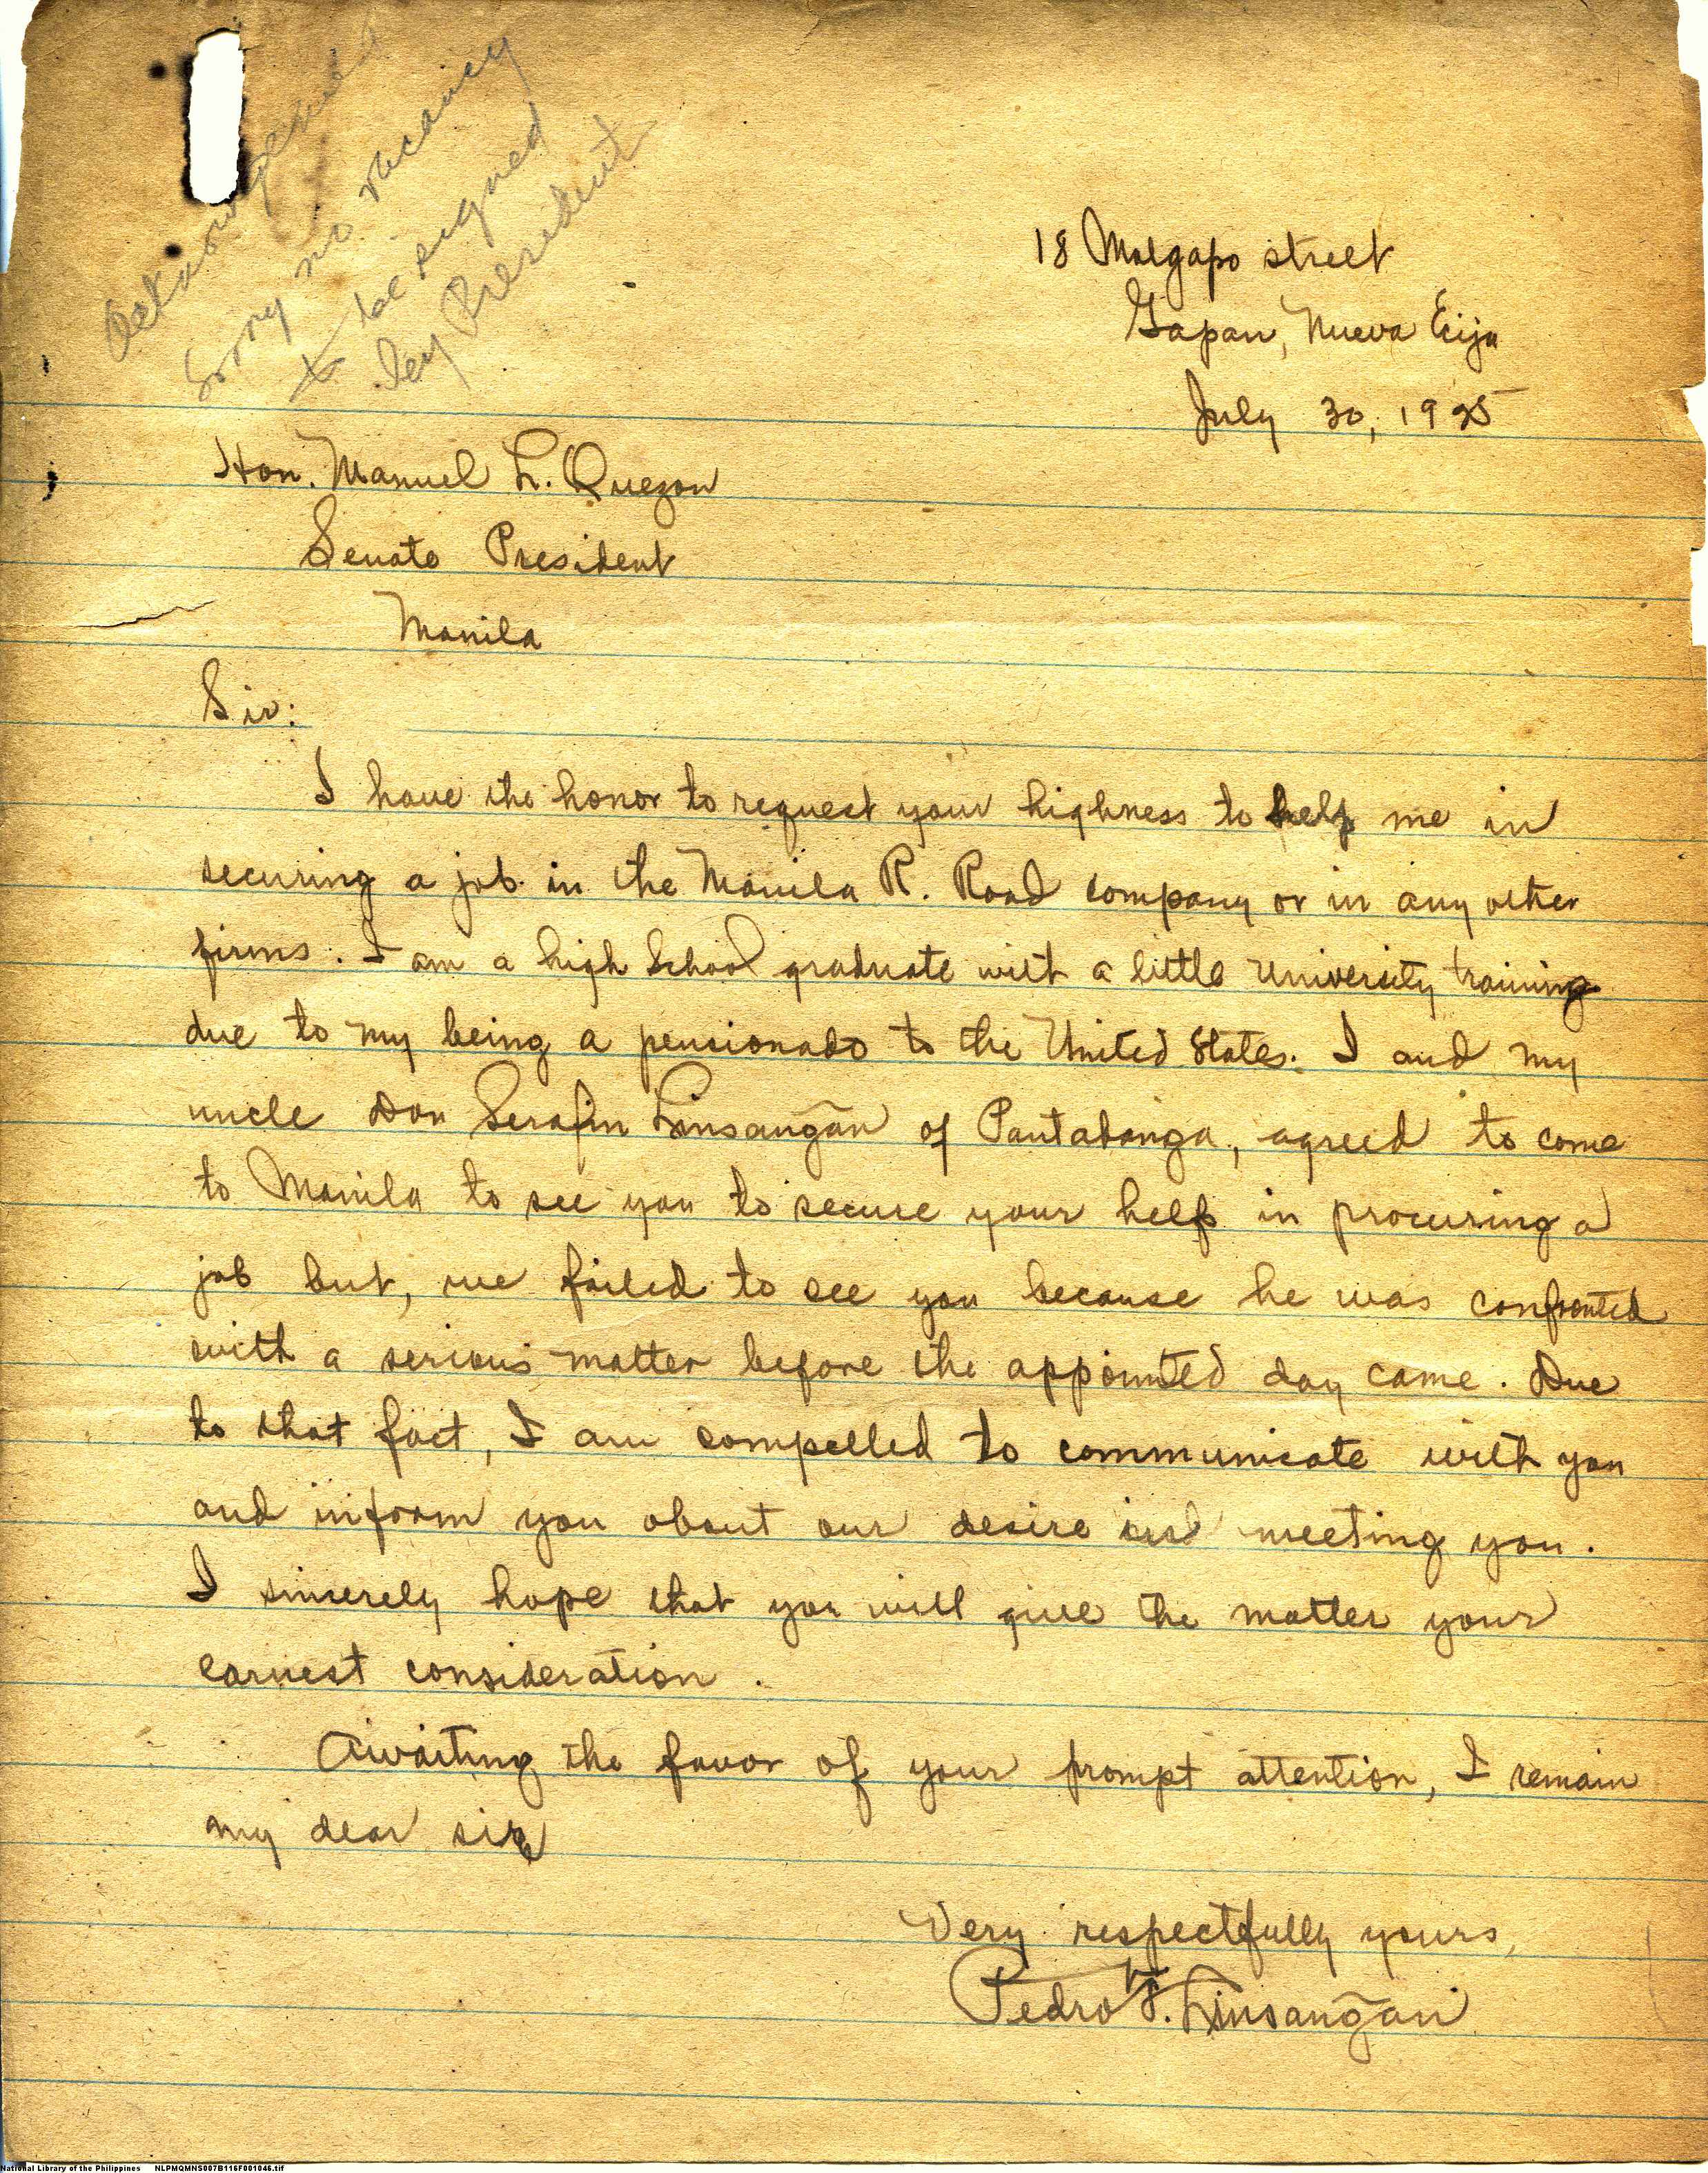 Sorry no vacancy
to be signed
by President
18 Malgapo street
Gapan, Nueva Ecija
July 30, 1925
Hon. Manuel L. Quezon
Senate President
Manila
Sir:
I have the honor to request your highness to help me in
securing a job in the Manila R. Road company or in any other
firms. I am a high School graduate with a little University training
due to my being a pensionado to the United States. I and my
uncle Don Serafin Linsangãn of Pantabanga, agreed to come
to Manila to see you to secure your help in procuring a
job but, we failed to see you because he was confronted
with a serious matter before the appointed day came. Due
to that fact, I am compelled to communicate with you
and inform you about our desire in meeting you.
I sincerely hope that you will give the matter your
earnest consideration.
Awaiting the favor of your prompt attention, I remain
my dear sir
Very respectfully yours,
Pedro F. Linsangãn
National Library of the Philippines NLPMQMNS007B116F001046.tif